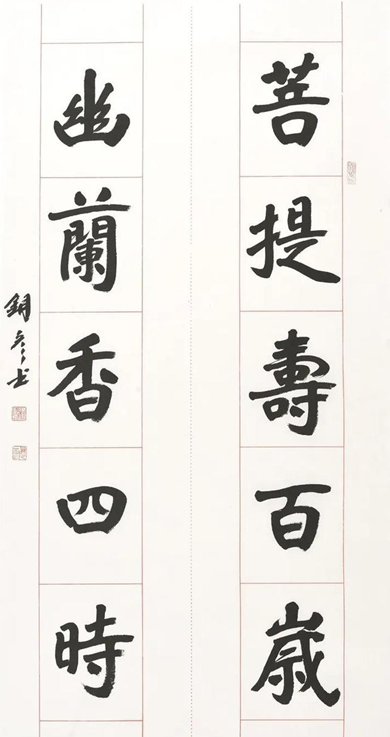 菩提壽百歲
幽蘭香四時